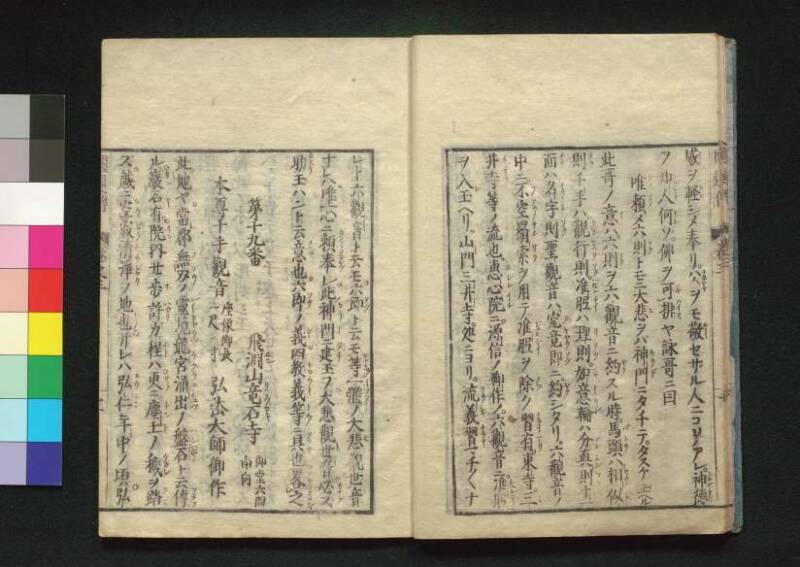 威ヲ軽シメ奉リハヲモ敬セサル人ニコソアレ神徳
ヲ 人何ソ佛ヲ可排ヤ詠哥ニ曰
唯頼メ六則トモ三大悲ヲバ神門ニタチテタスケ玉ヘル
此哥ノ意ハ六則ヲ六觀音ニ約スル時馬頭ハ相似
則千手ハ觀行則准胝ハ理則如意輪ハ分真則十一
面ハ名字則聖觀音ハ究竟即ニ約シタリ六觀音ノ
中ニ不空羂索ヲ用テ准胝ヲ除ク習有東寺三
井寺等ノ流也恵心院ニ源信ノ御作ノ六觀音ニ准胝
ヲ入玉ヘリ山門三井寺処ニヨリ流義習 チクナ
レトモ六觀音ト云モ六即ト云モ等一體ノ大悲觀世音
ナレハ唯一心ニ頼奉レ此神門ニ建玉フ大悲觀世音必ス
助玉ハント云意也六即ノ義四教義等ニ具也畧之
第十九番 飛淵山竜石寺 御堂六間南向
本尊千手觀音 座像御長一尺 寸 弘法大師御作
此地ヤ當郡無双ノ霊境龍宮涌出ノ盤石ト云傳
ル巖石有院内廿歩許カ程ハ更ニ塵土ノ穢ヲ踏
ス誠ニ空寂清浄ノ地也 レハ弘仁年中ノ頃弘